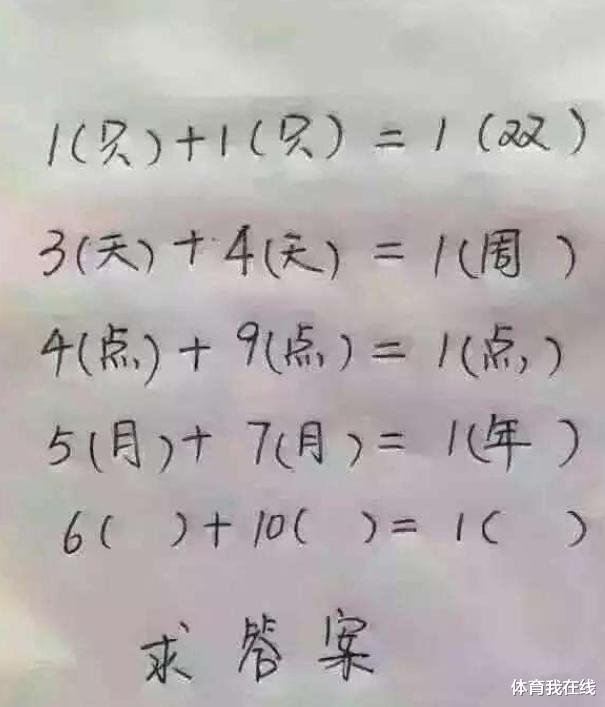 1(只)+1(只)=1(双)
3(天)+4(天)=1(周)
4(点)+9(点)=1(点)
5(月)+7(月)=1(年)
6( )+10( )=1( )
求答案
体育我在线